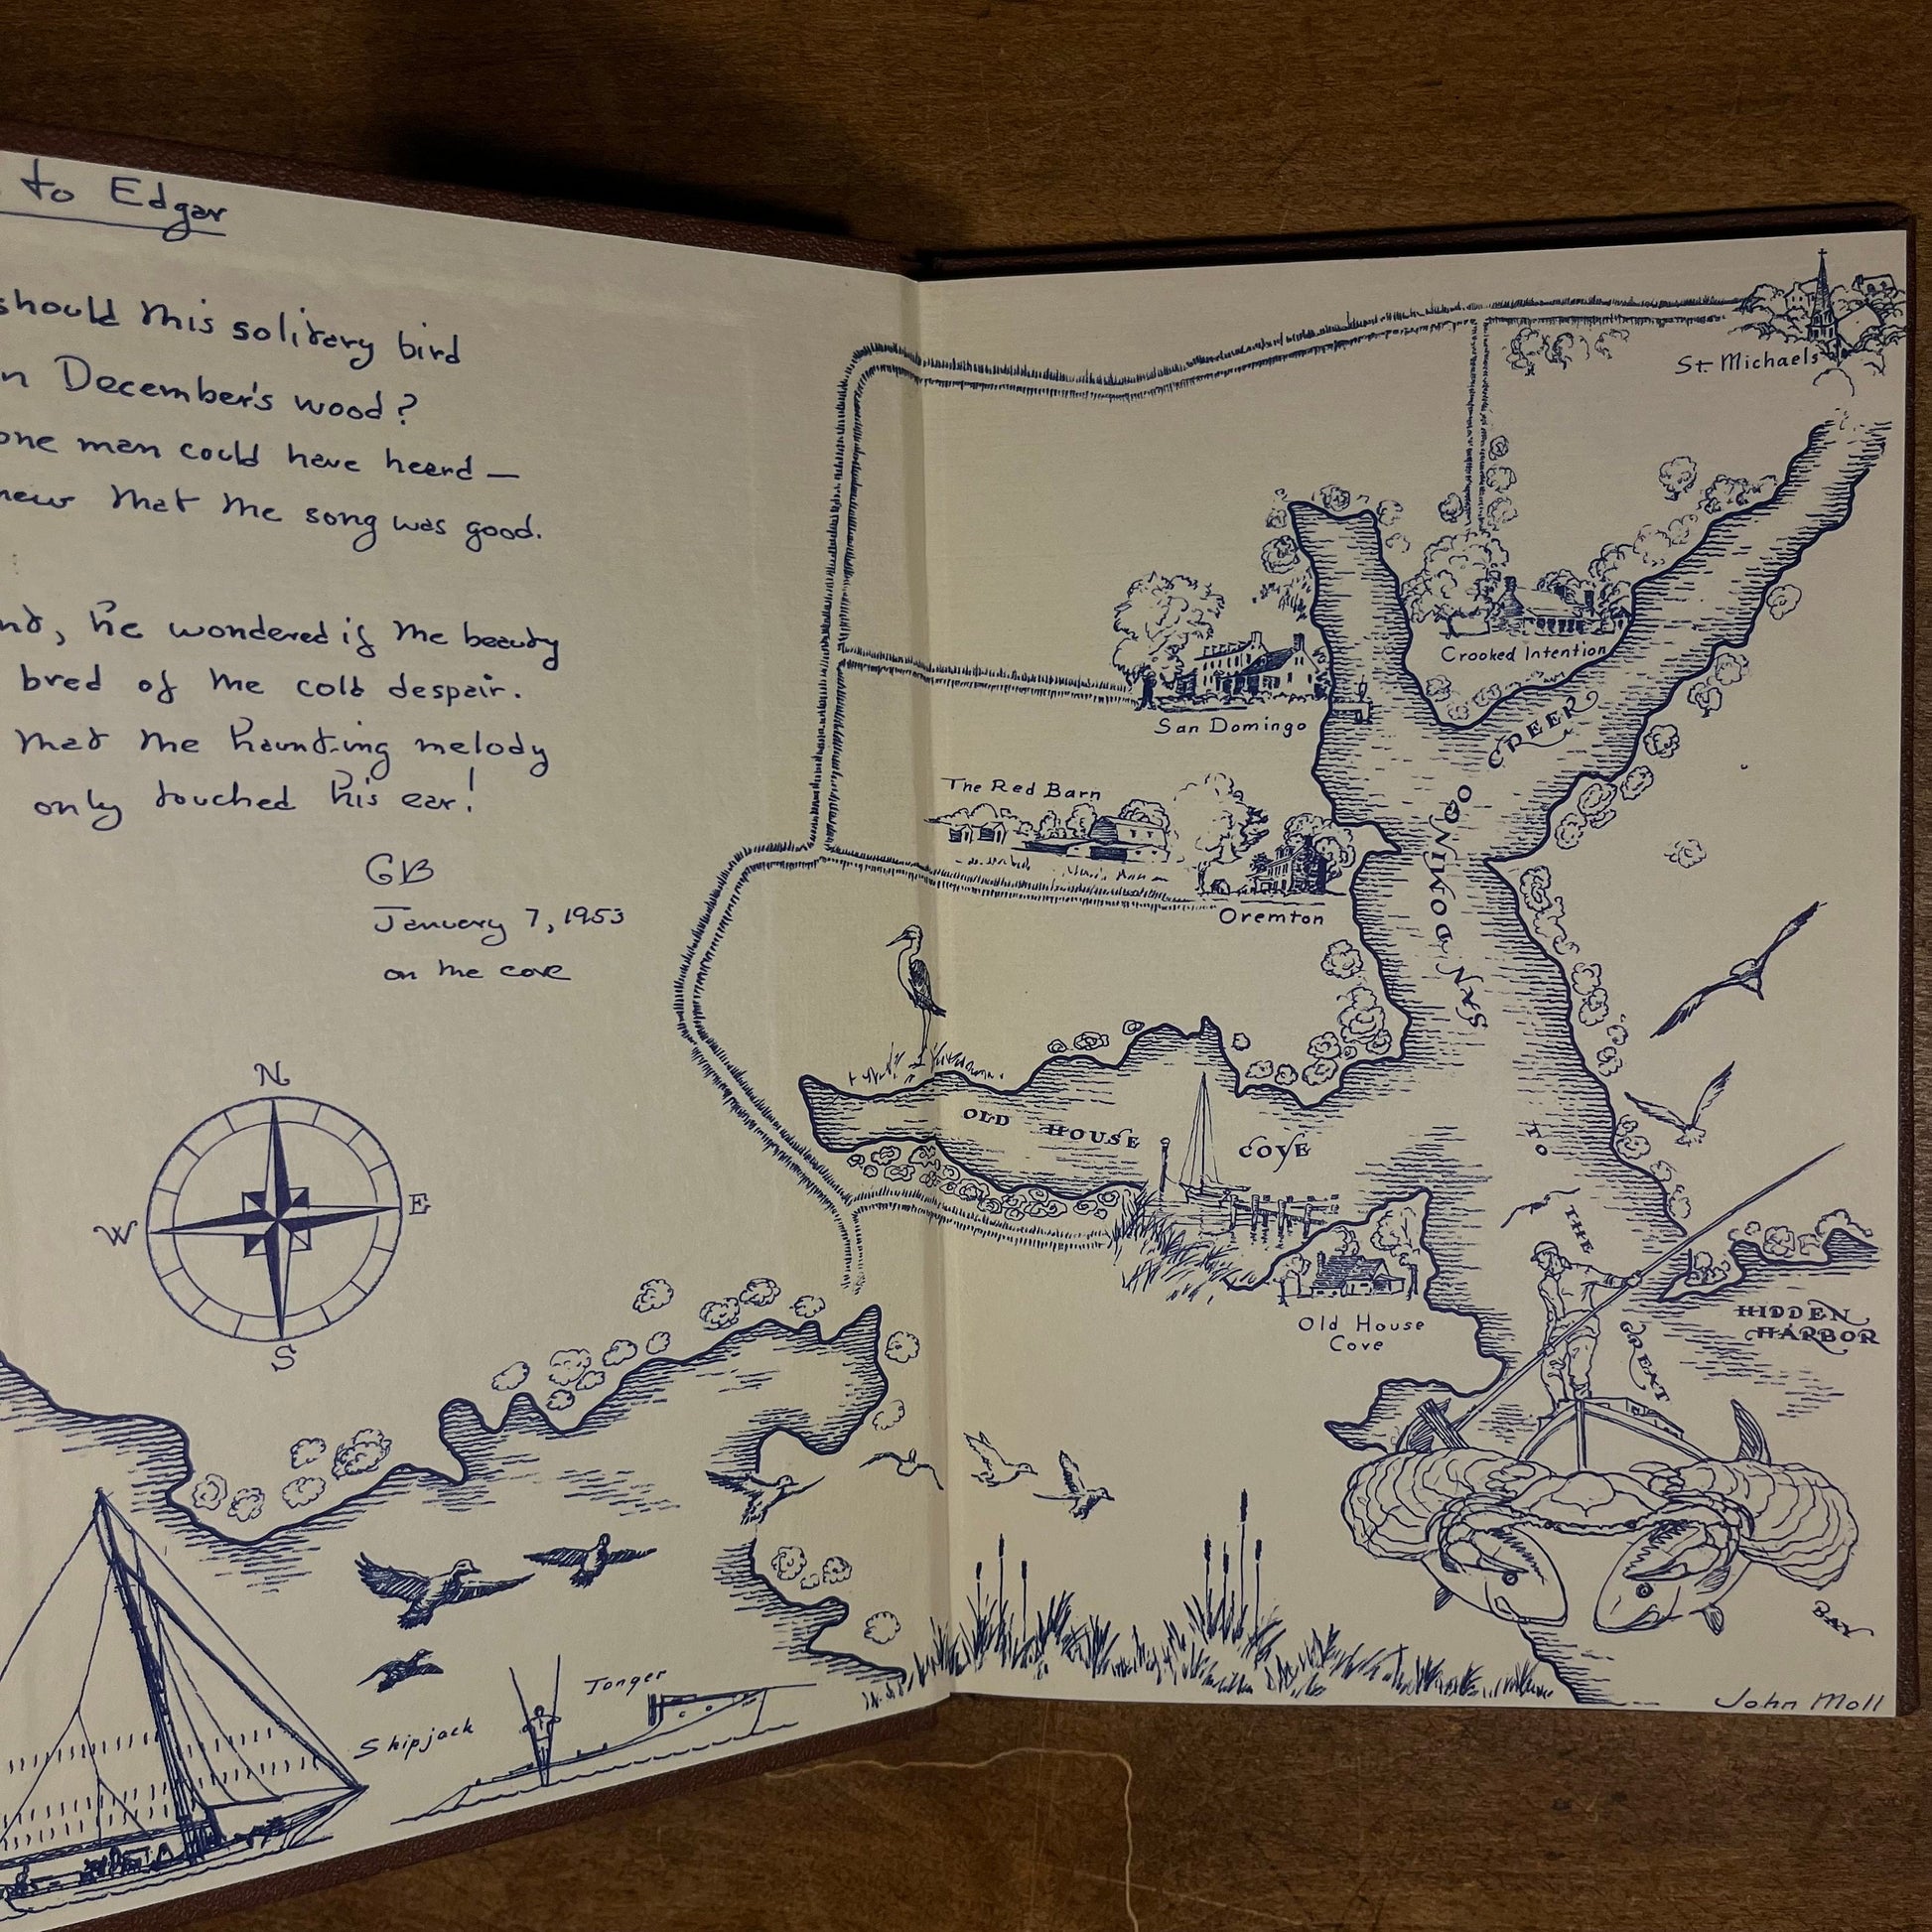 to Edgar
should this solitary bird
n December's wood?
one man could have heard —
new that the song was good.
nt, he wondered if the beauty
bred of the cold despair.
that the haunting melody
only touched his ear!
GB
January 7, 1953
on the cove
N
W E
S
Skipjack
Tonger
St. Michaels
Crooked Intention
San Domingo
SAN DOMINGO CREEK
The Red Barn
Oremton
OLD HOUSE COVE
Old House
Cove
TO THE GREAT BAY
HIDDEN
HARBOR
John Moll